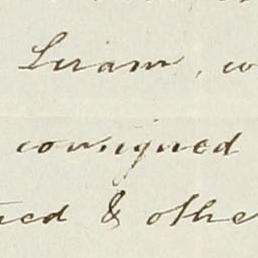 Siam, w
consigned
ed & othe